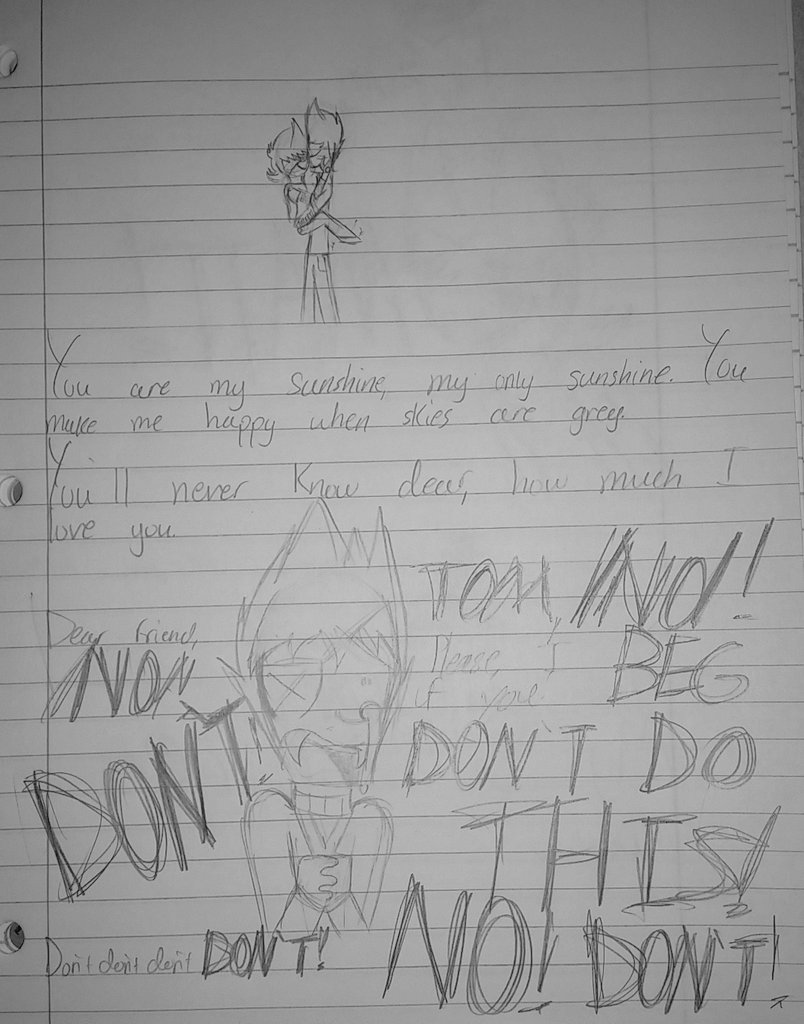 You are my sunshine, my only sunshine. You
make me happy when skies are grey.
You'll never know dear, how much I
love you.
Dear friend,
NO!!
DON'T!
TOM, NO!!
Please, I BEG
of you.
DON'T DO
THIS!
Don't don't don't DON'T!
NO! DON'T!